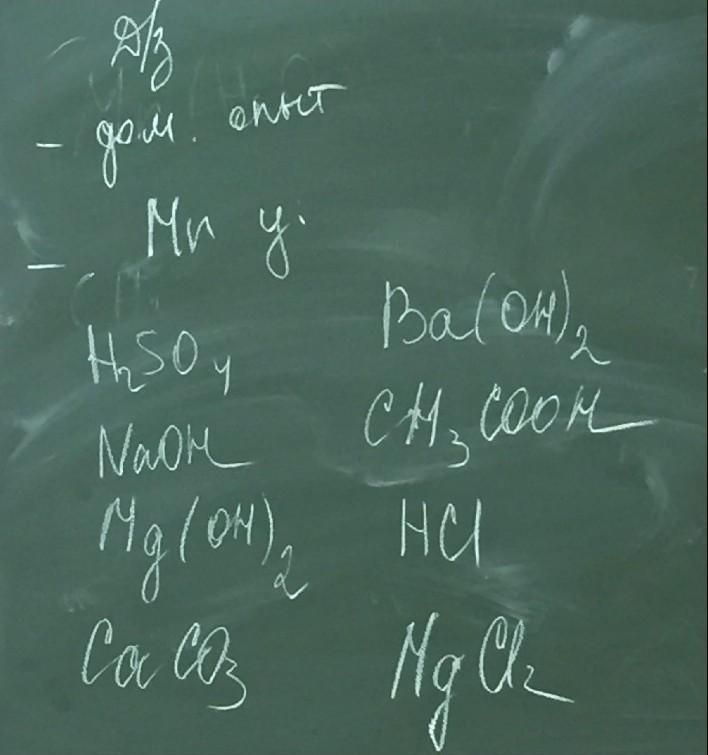 Д/з
- дом. опыт
- Mr у.
H₂SO₄
Ba(OH)₂
NaOH
CH₃COOH
Mg(OH)₂
HCl
CaCO₃
MgCl₂